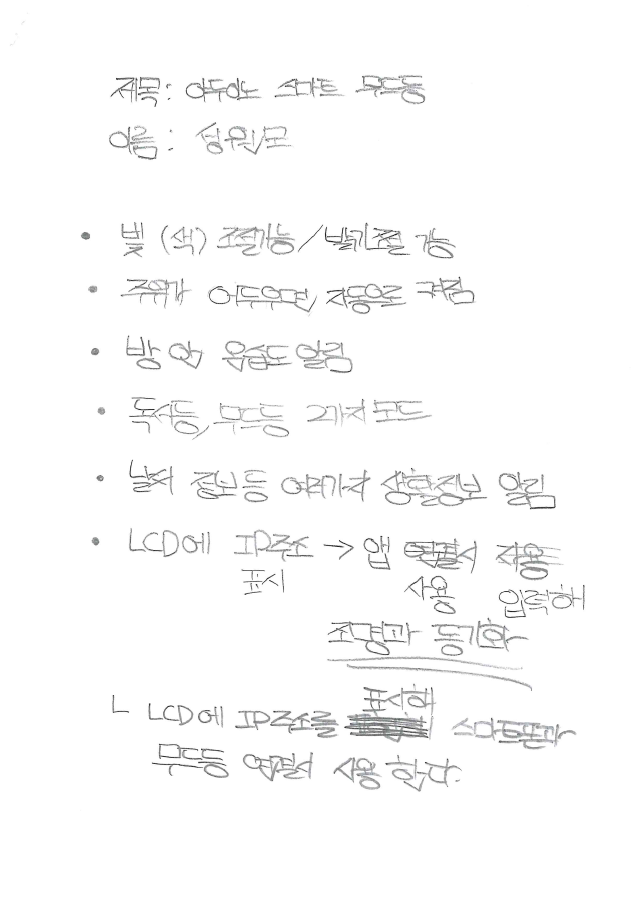 제목: 아두이노 스마트 무드등
이름: 성우민모
• 빛 (색) 조절가능/밝기조절 가능
• 주위가 어두우면 자동으로 켜짐
• 방 안 온습도 알림
• 독서등, 무드등 2가지 모드
• 날씨 정보 등 여러가지 생활정보 알림
• LCD에 IP주소 → 앱
표시 사용 입력해
조명과 동기화
ㄴ LCD에 IP주소를 표시하 스마트폰과
무드등 연결시 사용한다.